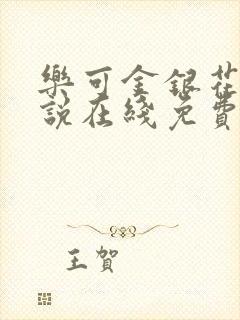 樂可金銀花
說在綫免費
王賀